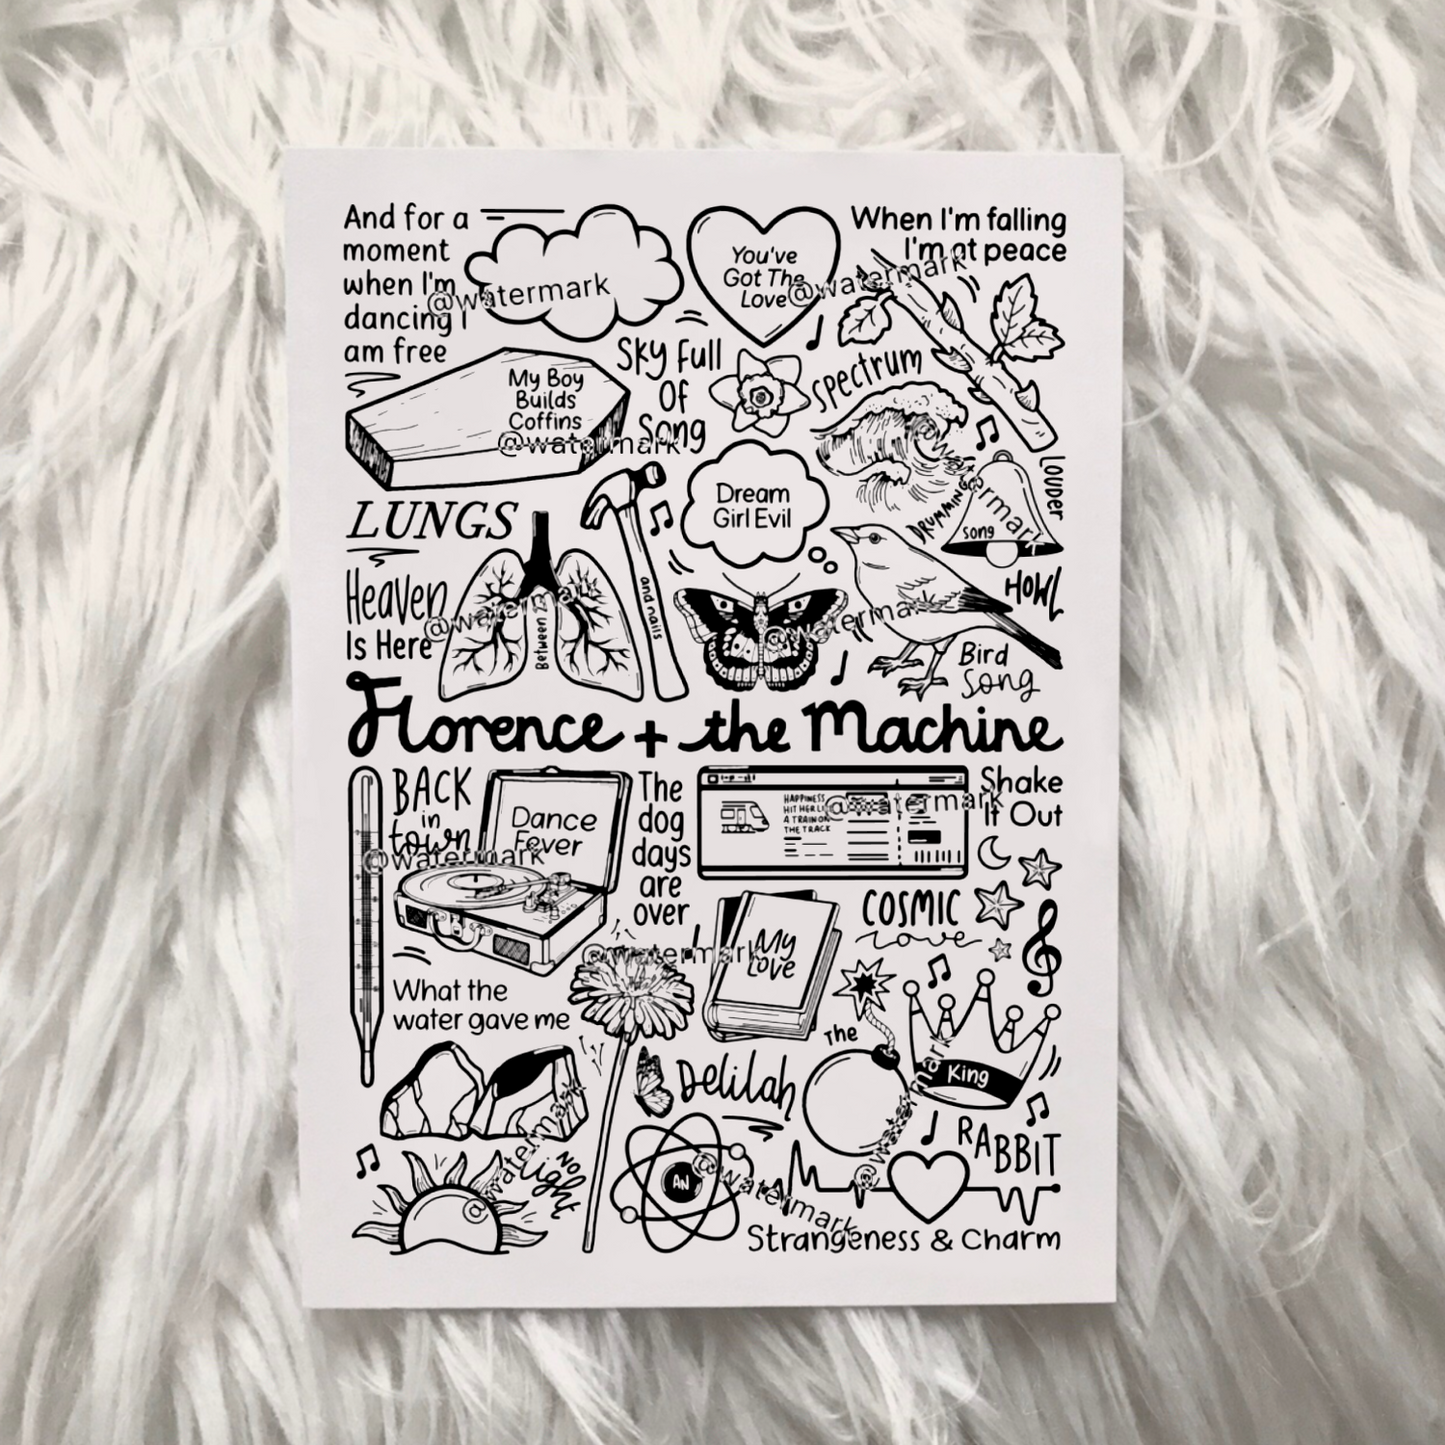 And for a
moment
when I'm
dancing I
am free
You've
Got The
Love
When I'm falling
I'm at peace
@watermark
@watermark
My Boy
Builds
Coffins
@watermark
Sky Full
Of
Song
Spectrum
LUNGS
and nails
Dream
Girl Evil
DRUMMING
song
LOUDER
@watermark
Heaven
Is Here
Between 2
@watermark
@watermark
HOWL
Bird
Song
Florence + the Machine
BACK
in
town
@watermark
Dance
Fever
The
dog
days
are
over
HAPPINESS
HIT HER LI
A TRAIN ON
THE TRACK
@watermark
Shake
It Out
COSMIC
Love
My
Love
@watermark
What the
water gave me
The
King
@watermark
Delilah
RABBIT
No
Light
@watermark
AN
@watermark
Strangeness & Charm